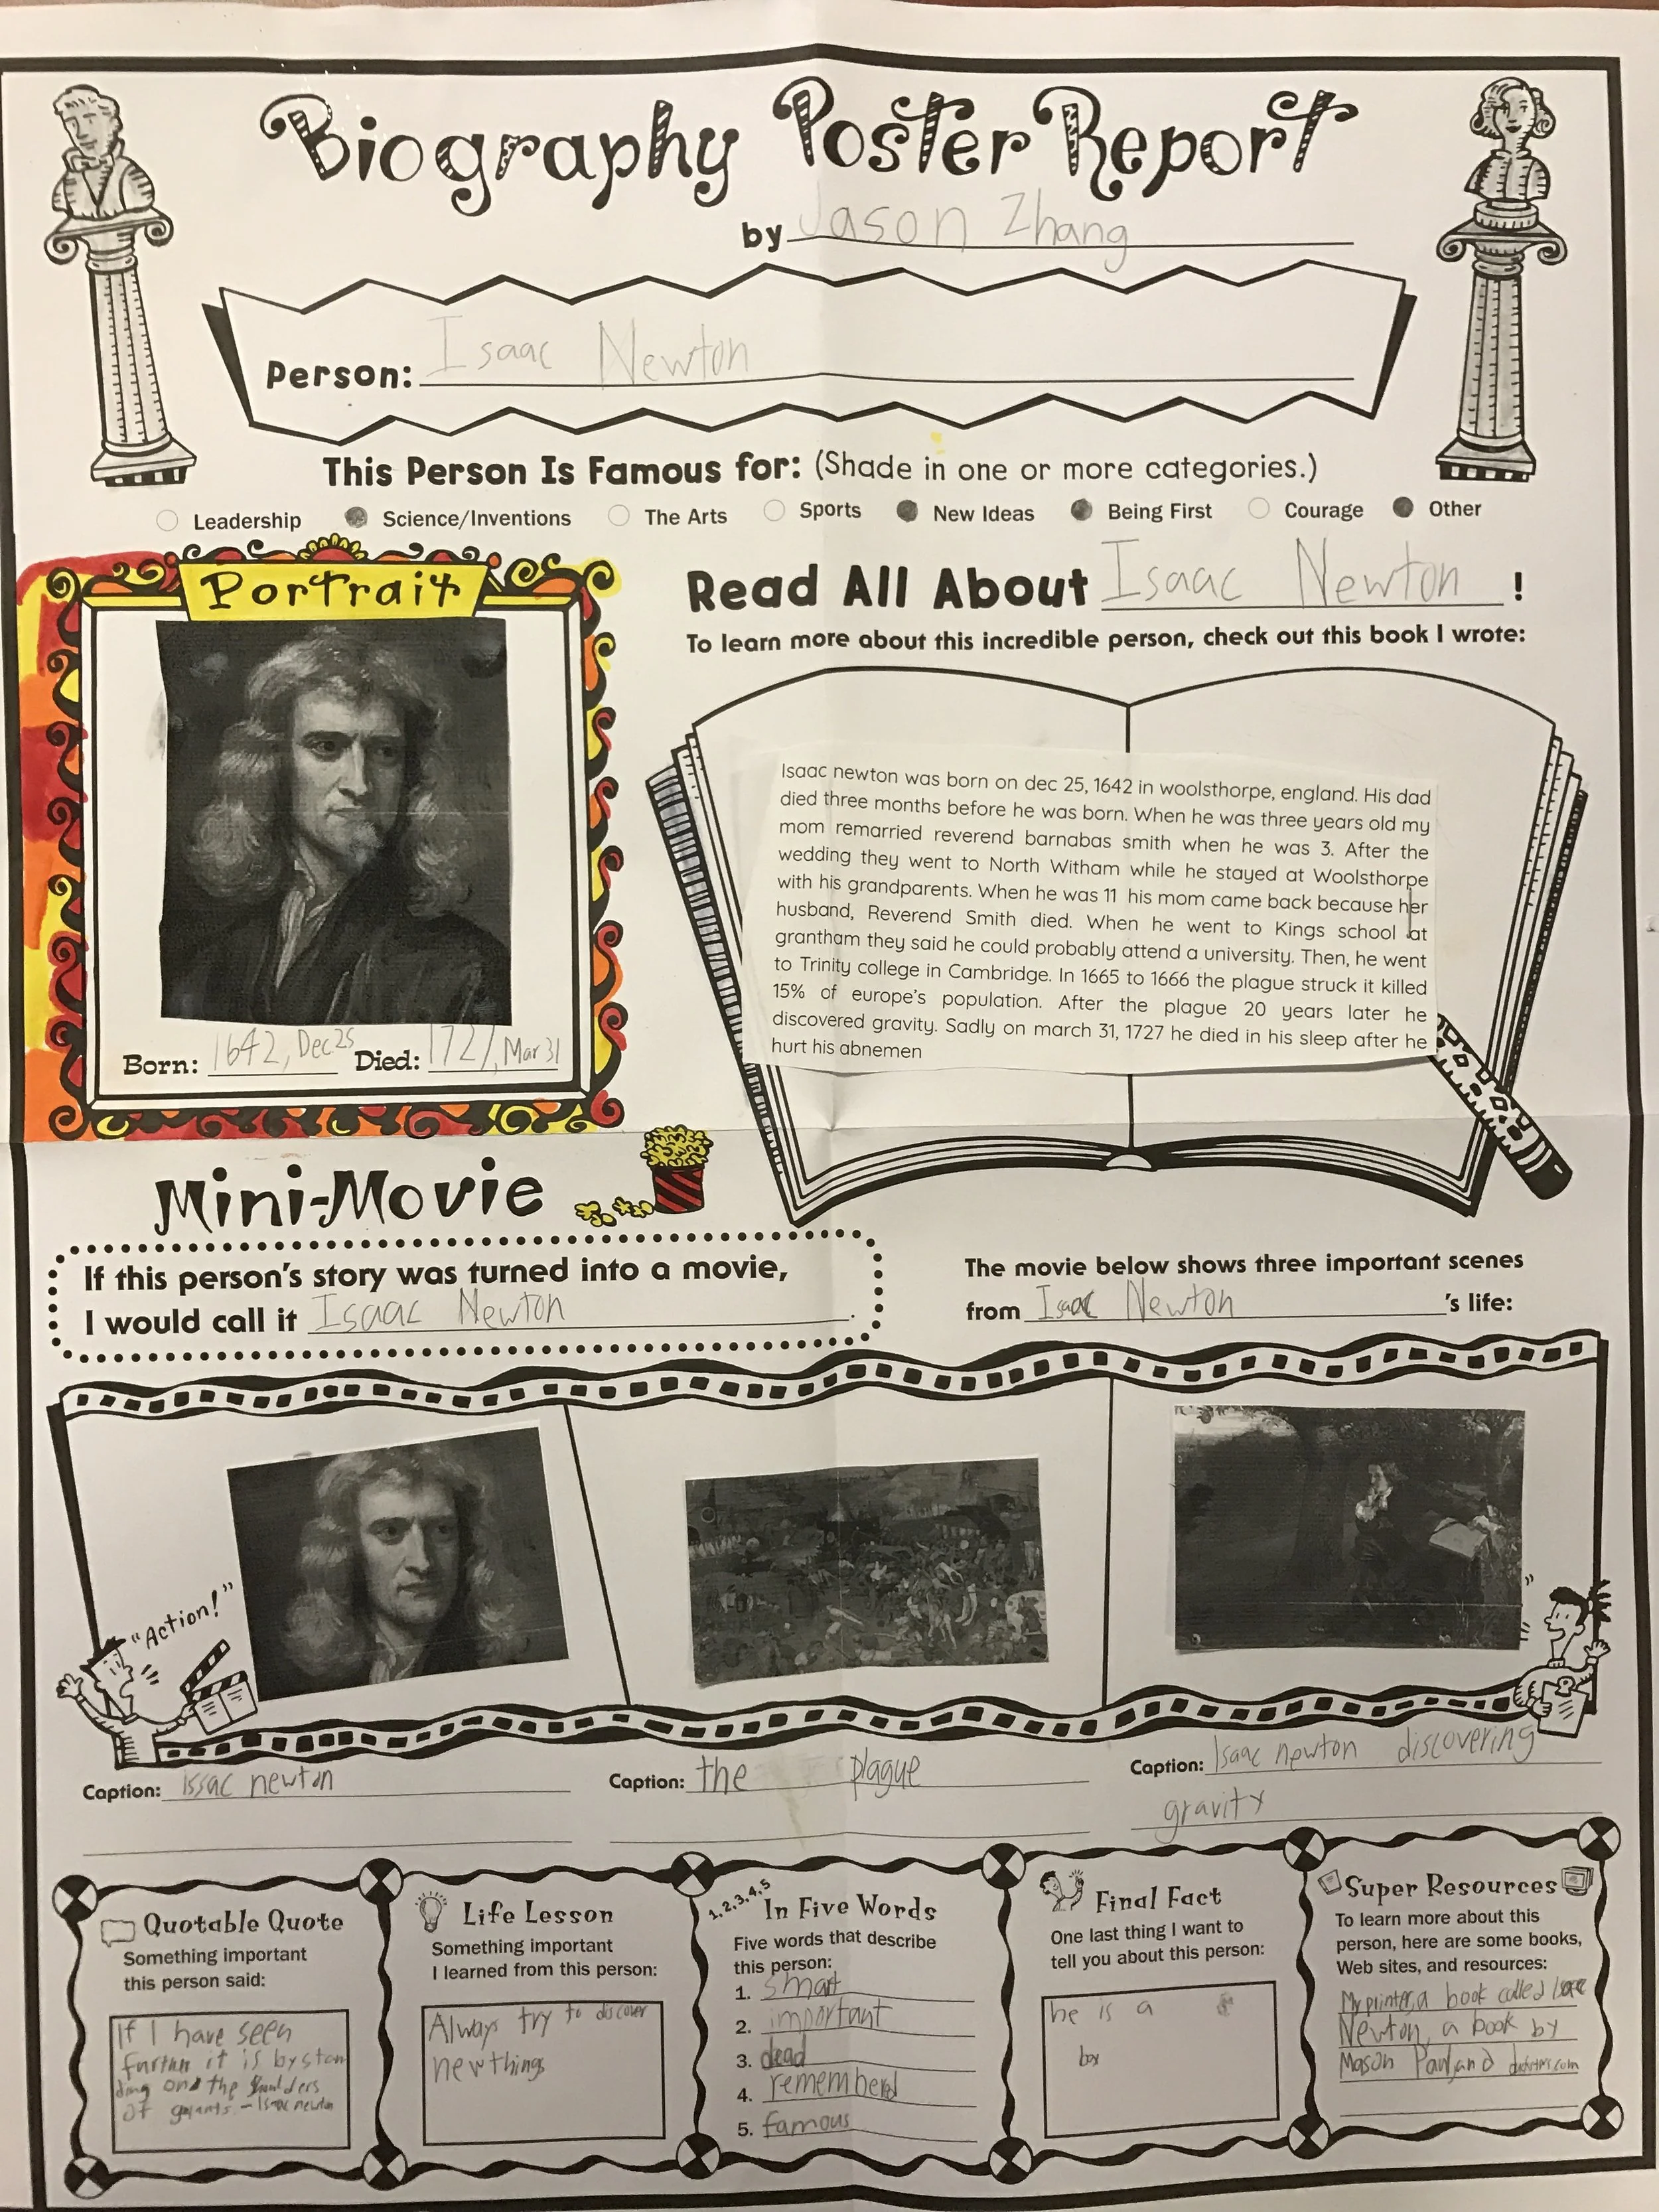 Biography Poster Report
by Jason Zhang
Person: Isaac Newton
This Person Is Famous for: (Shade in one or more categories.)
Leadership Science/Inventions The Arts Sports New Ideas Being First Courage Other
Portrait
Born: 1642, Dec 25 Died: 1727, Mar 31
Read All About Isaac Newton !
To learn more about this incredible person, check out this book I wrote:
Isaac newton was born on dec 25, 1642 in woolsthorpe, england. His dad
died three months before he was born. When he was three years old my
mom remarried reverend barnabas smith when he was 3. After the
wedding they went to North Witham while he stayed at Woolsthorpe
with his grandparents. When he was 11 his mom came back because her
husband, Reverend Smith died. When he went to Kings school at
grantham they said he could probably attend a university. Then, he went
to Trinity college in Cambridge. In 1665 to 1666 the plague struck it killed
15% of europe's population. After the plague 20 years later he
discovered gravity. Sadly on march 31, 1727 he died in his sleep after he
hurt his abnemen
Mini-Movie
If this person's story was turned into a movie,
I would call it Isaac Newton.
The movie below shows three important scenes
from Isaac Newton's life:
"Action!"
Caption: Issac newton
Caption: the plague
Caption: Isaac newton discovering
gravity
Quotable Quote
Something important
this person said:
If I have seen
further it is by stan
ding on the
of
- Isaac newton
Life Lesson
Something important
I learned from this person:
Always try to discover
new things
1, 2, 3, 4, 5
In Five Words
Five words that describe
this person:
1. smart
2. important
3. dead
4. remembered
5. famous
Final Fact
One last thing I want to
tell you about this person:
he is a
boy
Super Resources
To learn more about this
person, here are some books,
Web sites, and resources:
My printer, a book called Isaac
Newton, a book by
Mason